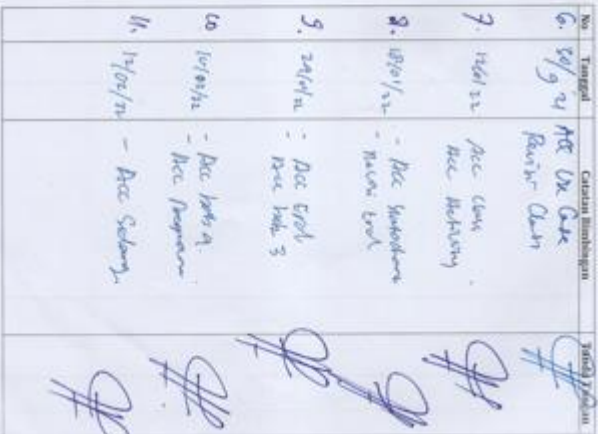 No Tanggal Catatan Bimbingan Tanda Tangan
6. 30/9 21 Acc Use Case
Revisi Class
7. 12/01 22 Acc Class
Acc Activity
8. 18/01/22 - Acc
- Revisi Erd
9. 24/01/22 - Acc Erd
- Acc bab 3
10 10/02/22 - Acc bab 4
- Acc Program
11. 12/02/22 - Acc Sidang